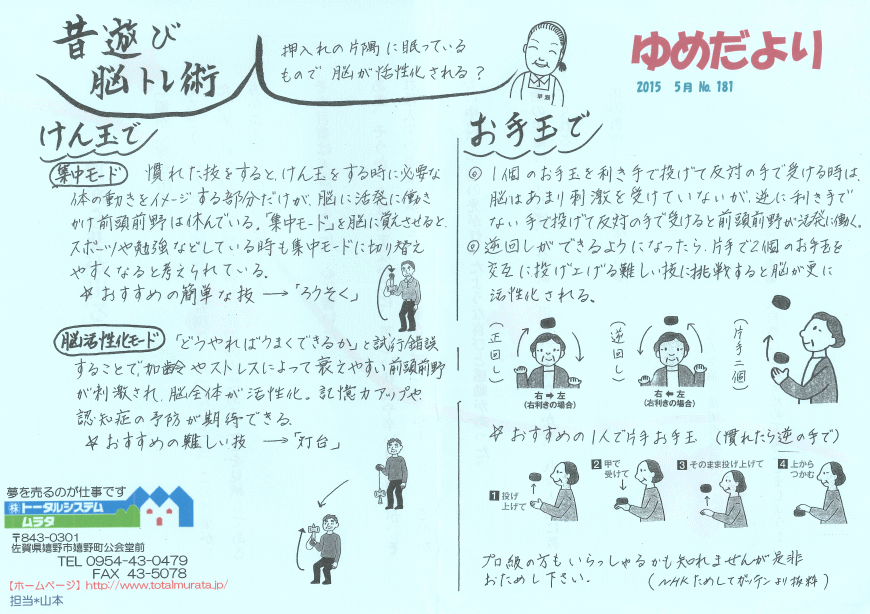 昔遊び
脳トレ術
押入れの片隅に眠っている
もので 脳が活性化される?
ゆめだより
2015 5月 No. 181
けん玉で
集中モード 慣れた技をすると、けん玉をする時に必要な
体の動きをイメージする部分だけが、脳に活発に働き
かけ前頭前野は休んでいる。「集中モード」を脳に覚えさせると、
スポーツや勉強などしている時も集中モードに切り替え
やすくなると考えられている。
☆ おすすめの簡単な技 →「ろうそく」
脳活性化モード 「どうやればうまくできるか」と試行錯誤
することで加齢やストレスによって衰えやすい前頭前野
が刺激され、脳全体が活性化。記憶力アップや
認知症の予防が期待できる。
☆ おすすめの難しい技 →「灯台」
夢を売るのが仕事です
㈱トータルシステム
ムラタ
〒843-0301
佐賀県嬉野市嬉野町公会堂前
TEL 0954-43-0479
FAX 43-5078
【ホームページ】http://www.totalmurata.jp/
担当*山本
お手玉で
◎ 1個のお手玉を利き手で投げて反対の手で受ける時は、
脳はあまり刺激を受けていないが、逆に利き手で
ない手で投げて反対の手で受けると前頭前野が活発に働く。
◎ 逆回しができるようになったら、片手で2個のお手玉を
交互に投げ上げる難しい技に挑戦すると脳が更に
活性化される。
(正回し)
右⇒左
(右利きの場合)
(逆回し)
右⇐左
(右利きの場合)
(片手二個)
☆ おすすめの1人で片手お手玉 (慣れたら逆の手で)
1 投げ
上げて
2 甲で
受けて
3 そのまま投げ上げて
4 上から
つかむ
プロ級の方もいらっしゃるかも知れませんが是非
おためし下さい。 (NHKためしてガッテンより抜粋)